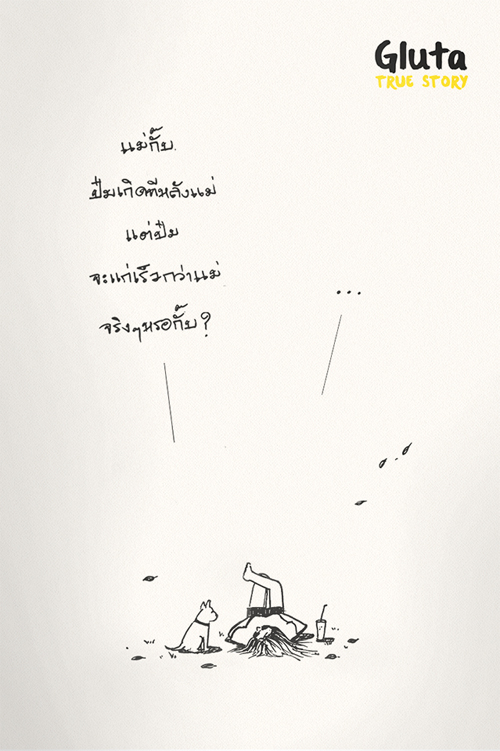 Gluta
TRUE STORY
แม่กั๊บ.
ปืมเกิดทีหลังแม่
แต่ปืม
จะแก่เร็วกว่าแม่
จริงๆหรอกั๊บ?
...